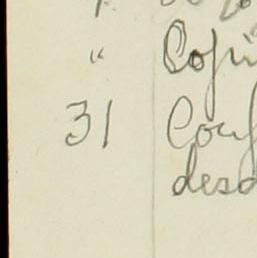 " Copi
31 Conf
desd